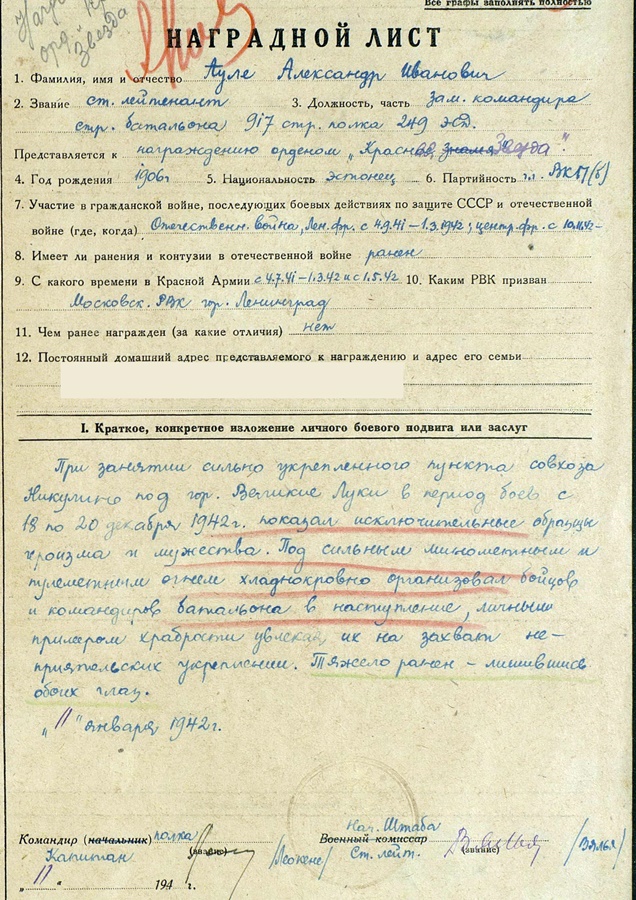 Все графы заполнять полностью
орд. Кр.
Звезда
НАГРАДНОЙ ЛИСТ
1. Фамилия, имя и отчество Ауле Александр Иванович
2. Звание ст. лейтенант 3. Должность, часть Зам. командира
стр. батальона 917 стр. полка 249 ЭСД.
Представляется к награждению орденом „Красная Звезда“.
4. Год рождения 1906г 5. Национальность эстонец 6. Партийность чл. ВКП(б)
7. Участие в гражданской войне, последующих боевых действиях по защите СССР и отечественной
войне (где, когда) Отечественн. война, Лен. фр. с 4.9.41 – 1.3.1942; центр. фр. с
8. Имеет ли ранения и контузии в отечественной войне ранен
9. С какого времени в Красной Армии с 4.7.41 – 1.3.42 и с 1.5.42 10. Каким РВК призван
Московск. РВК гор. Ленинград
11. Чем ранее награжден (за какие отличия) нет
12. Постоянный домашний адрес представляемого к награждению и адрес его семьи
I. Краткое, конкретное изложение личного боевого подвига или заслуг
При занятии сильно укрепленного пункта совхоза
Никулино под гор. Великие Луки в период боев с
18 по 20 декабря 1942г. показал исключительные образцы
героизма и мужества. Под сильным минометным и
пулеметным огнем хладнокровно организовал бойцов
и командиров батальона в наступление, личным
примером храбрости увлекая их на захват не-
приятельских укреплении. Тяжело ранен – лишившись
обоих глаз.
„11“ января 1942г.
Командир (начальник) полка Нач. Штаба Военный комиссар
Капитан (звание) /Леокене/ Ст. лейт. (звание) /Вялья/
„11“ 194 г.